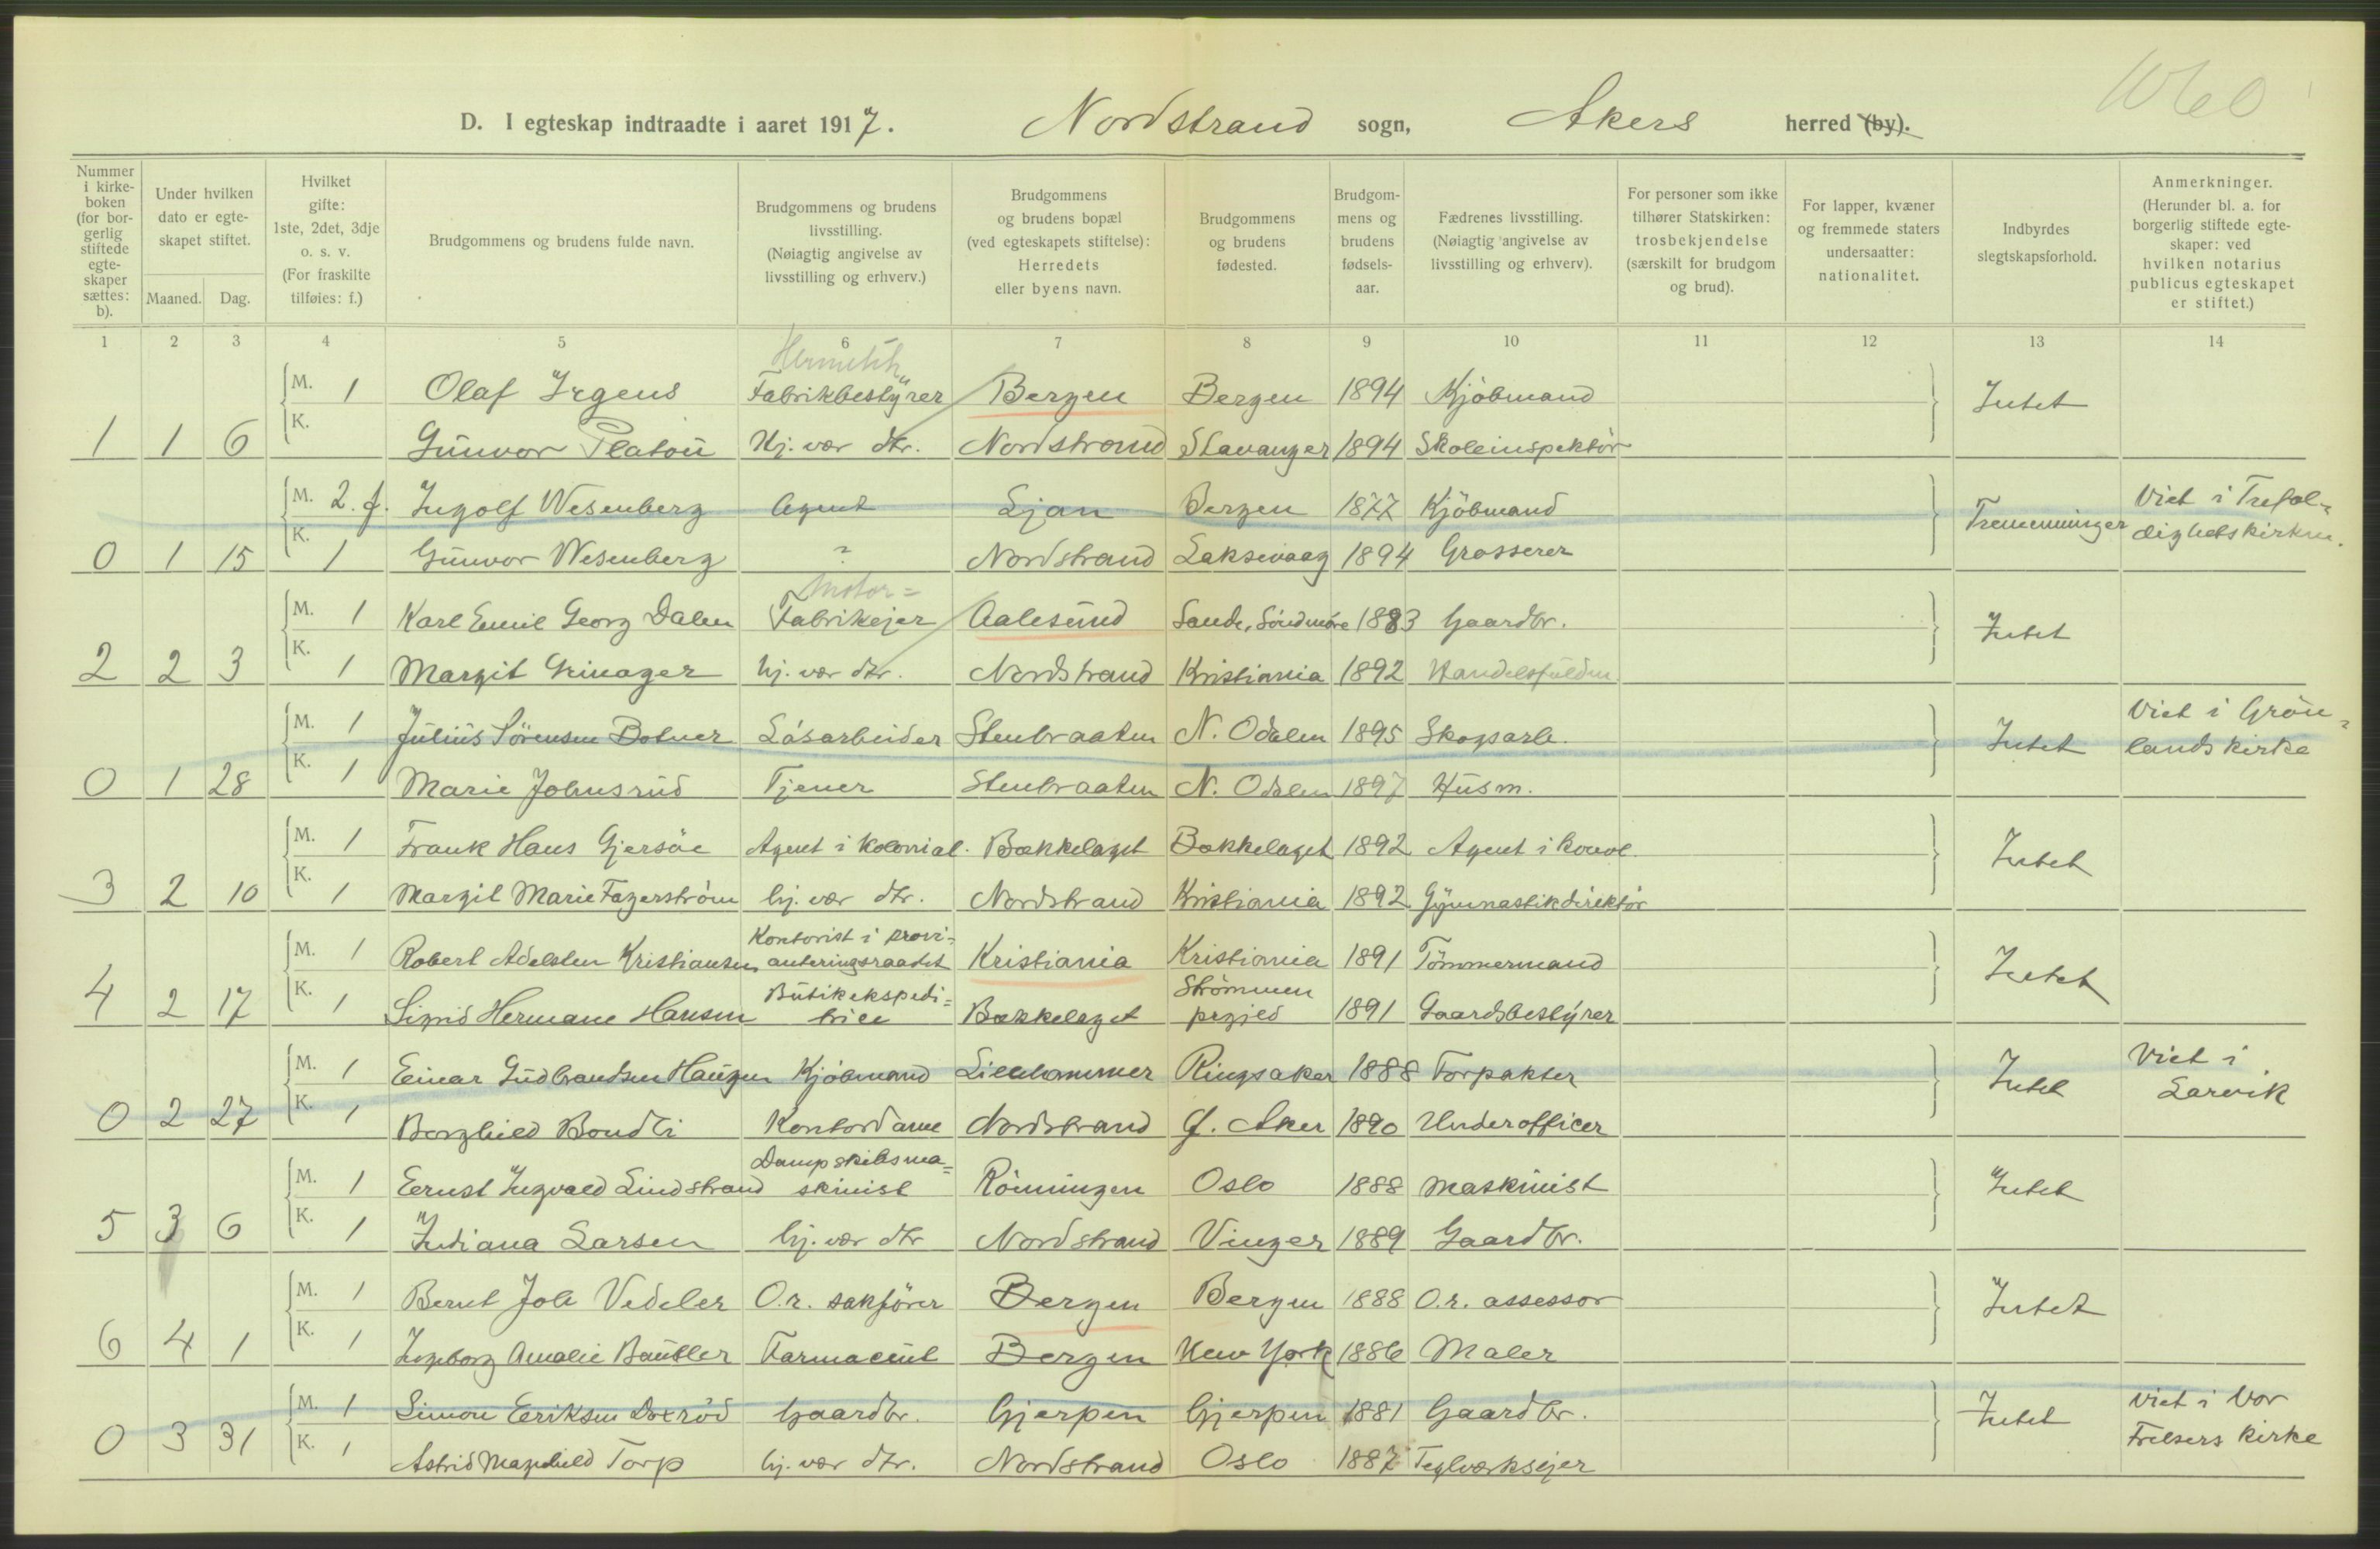 D. I egteskap indtraadte i aaret 1917. Nordstrand sogn, Akers herred (by).
Nummer i kirkeboken (for borgerlig stiftede egteskaper sættes: b).
Under hvilken dato er egteskapet stiftet.
Maaned. Dag.
Hvilket gifte: 1ste, 2det, 3dje o. s. v. (For fraskilte tilføies: f.)
Brudgommens og brudens fulde navn.
Brudgommens og brudens livsstilling. (Nøiagtig angivelse av livsstilling og erhverv.)
Brudgommens og brudens bopæl (ved egteskapets stiftelse): Herredets eller byens navn.
Brudgommens og brudens fødested.
Brudgommens og brudens fødselsaar.
Fædrenes livsstilling. (Nøiagtig angivelse av livsstilling og erhverv).
For personer som ikke tilhører Statskirken: trosbekjendelse (særskilt for brudgom og brud).
For lapper, kvæner og fremmede staters undersaatter: nationalitet.
Indbyrdes slegtskapsforhold.
Anmerkninger. (Herunder bl. a. for borgerlig stiftede egteskaper: ved hvilken notarius publicus egteskapet er stiftet.)
1 2 3 4 5 6 7 8 9 10 11 12 13 14
M. 1 Olaf Irgens Fabrikbestyrer Bergen Bergen 1894 Kjöbmand Intet
1 1 6 K. Gunvor Platou Hj. vær. dtr. Nordstrand Stavanger 1894 Skoleinspektör
M. 2. f. Ingolf Wesenberg Agent Ljan Bergen 1877 Kjöbmand Tremenninger Viet i Trefol-
dighetskirken.
0 1 15 K. 1 Gunvor Wesenberg ? Nordstrand Laksevaag 1894 Grosserer
Motor=
M. 1 Karl Emil Georg Dalen Fabrikejer Aalesund Sande, Söndmöre 1883 Gaardbr. Intet
2 2 3 K. 1 Margit Grinager hj. vær dtr. Nordstrand Kristiania 1892 Handelsfuldm
M. 1 Julius Sörensen Botner Lösarbeider Stenbraaten N. Odalen 1895 Skogarb. Intet Viet i Grön=
landskirke
0 1 28 K. 1 Marie Johnsrud Tjener Stenbraaten N. Odalen 1897 Husm.
M. 1 Frank Hans Gjersöe Agent i kolonial. Bækkelaget Bækkelaget 1892 Agent i kolol. Intet
3 2 10 K. 1 Margit Marie Fagerström hj. vær dtr. Nordstrand Kristiania 1892 Gymnastikdirektör
Kontorist i provi=
M. 1 Robert Adelsten Kristiansen anteringsraadet Kristiania Kristiania 1891 Tömmermand Intet
Butikekspedi= Strömmen
4 2 17 K. 1 Sigrid Hermane Hansen trice Bækkelaget prgjed 1891 Gaardsbestyrer
M. 1 Einar Gudbrandsen Haugen Kjöbmand Lillehammer Ringsaker 1888 Forpakter Intet Viet i
Larvik
0 2 27 K. 1 Borghild Bondli Kontordame Nordstrand G. Aker 1890 Underofficer
Dampskibsma=
M. 1 Ernst Ingvald Lindstrand skinist Rönningen Oslo 1888 Maskinist Intet
5 3 6 K. 1 Indiana Larsen hj. vær dtr Nordstrand Vinger 1889 Gaardbr.
M. 1 Bernt Joh Vedeler O.r. sakförer Bergen Bergen 1888 O.r. assessor Intet
6 4 1 K. 1 Ingeborg Amalie Bautler Farmaceut Bergen New York 1886 Maler
M. 1 Simon Eriksen Doxröd Gaardbr. Gjerpen Gjerpen 1881 Gaardbr. Intet Viet i Vor
Frelsers kirke
0 3 31 K. 1 Astrid Magnhild Torp hj. vær dtr. Nordstrand Oslo 1887 Teglværksejer